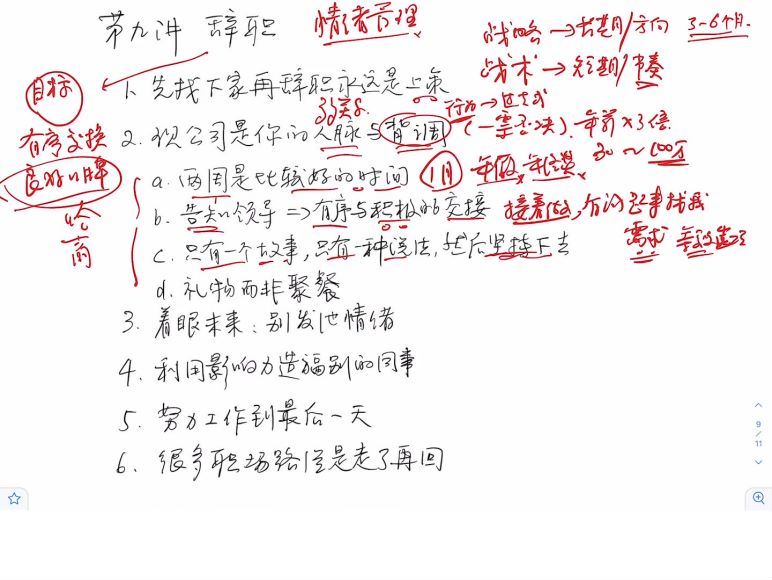 第九讲 辞职 情绪管理
战略 → 长期/方向 3-6个月.
战术 → 短期/节奏
目标
1. 先找下家再辞职永远是上策
行为 →
有序交换
2. 现公司是你的人脉与背调 (一票否决). 年薪×3倍
良好口碑
30 ~ 100万
a. 两周是比较好的时间 1月 年假,
b. 告知领导 => 有序与积极的交接 接着做,
哈商
c. 只有一个故事, 只有一种说法, 然后坚持下去
需求
d. 礼物而非聚餐
3. 着眼未来: 别发泄情绪
4. 利用影响力造福别的同事
5. 努力工作到最后一天
6. 很多职场路径是走了再回
9
/
11